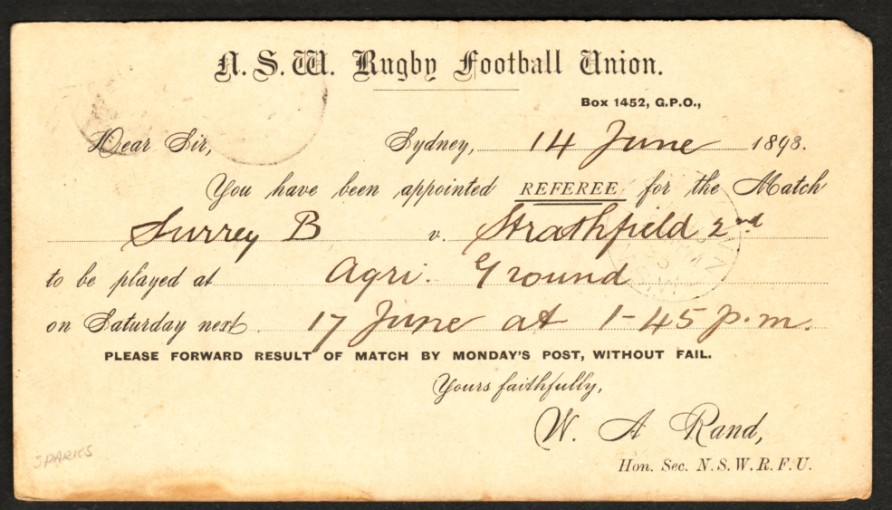 N.S.W. Rugby Football Union.
Box 1452, G.P.O.,
Dear Sir, Sydney, 14 June 1893.
You have been appointed REFEREE for the Match
Surrey B v. Strathfield 2nd
to be played at Agri. Ground
on Saturday next. 17 June at 1-45 p.m.
PLEASE FORWARD RESULT OF MATCH BY MONDAY'S POST, WITHOUT FAIL.
Yours faithfully,
W. A Rand,
Hon. Sec. N.S.W.R.F.U.
SPARKS